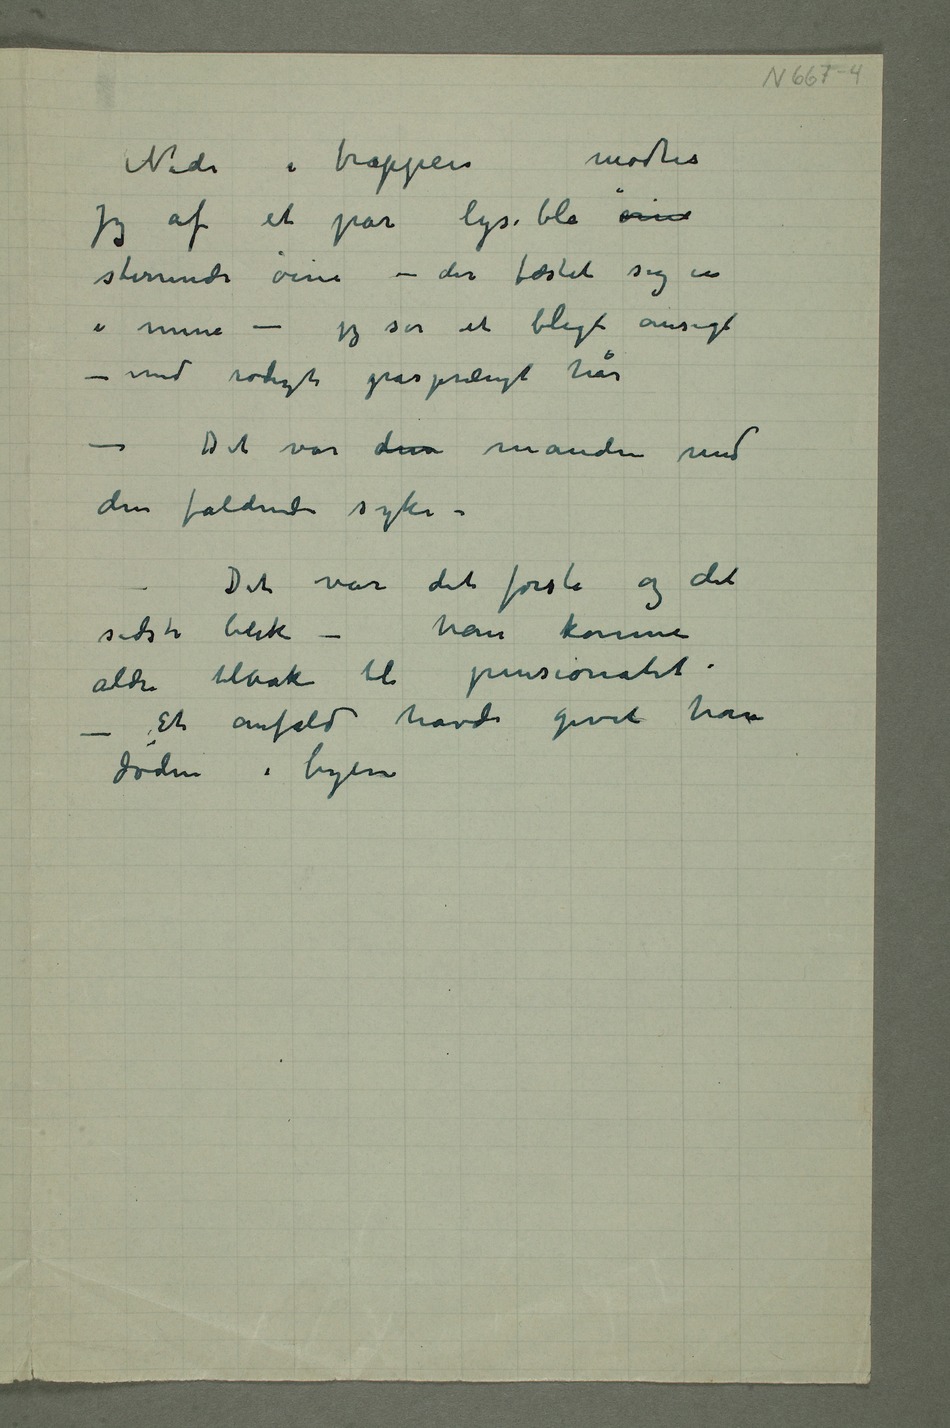 N 667-4
Nede i trappen mødtes
jeg af et par lyseblå øine
stirrende øine – der fæstet sig in
i mine – jeg sar et blegt ansigt
– med rødlygt gråsprængt hår
– Det var den manden med
den faldende syke –
– Det var det første og det
sidste blik – han komme
aldri tilbake til pensionatet.
– Et anfald havde givet ham
døden i byen